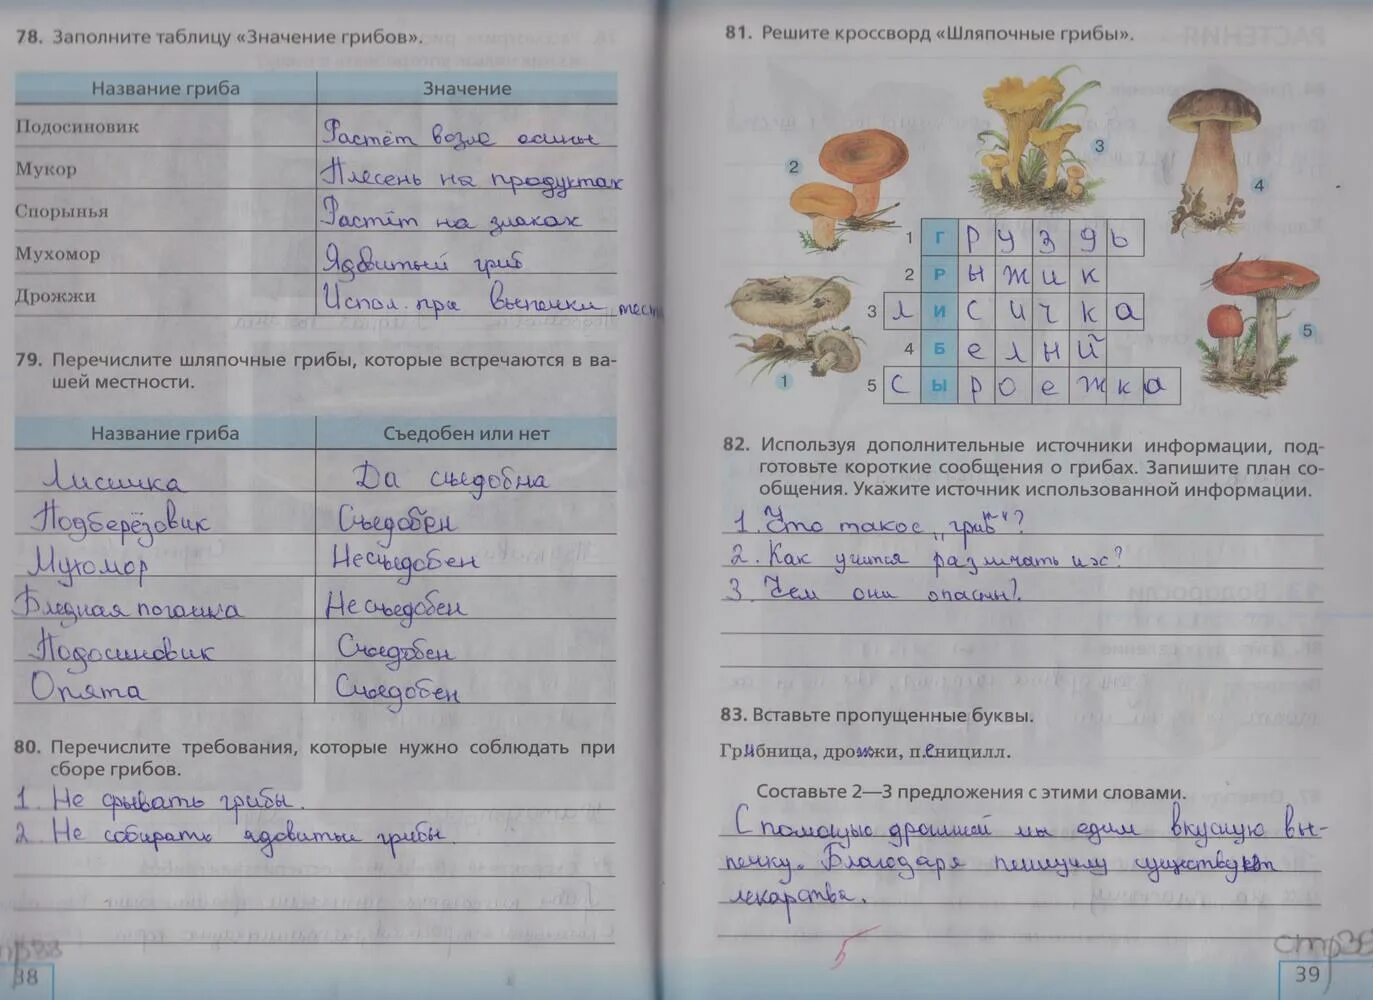 78. Заполните таблицу «Значение грибов».
Название гриба Значение
Подосиновик Растёт возле осины
Мукор Плесень на продуктах
Спорынья Растёт на злаках
Мухомор Ядовитый гриб
Дрожжи Испол. при выпечки тест
79. Перечислите шляпочные грибы, которые встречаются в ва-
шей местности.
Название гриба Съедобен или нет
Лисичка Да съедобна
Подберёзовик Съедобен
Мухомор Несъедобен
Бледная поганка Несъедобен
Подосиновик Съедобен
Опята Съедобен
80. Перечислите требования, которые нужно соблюдать при
сборе грибов.
1. Не срывать грибы.
2. Не собирать ядовитые грибы.
38
81. Решите кроссворд «Шляпочные грибы».
2
3
4
1 Груздь
2 Рыжик
3 лисичка
4 Белый
5 сыроежка
1
5
82. Используя дополнительные источники информации, под-
готовьте короткие сообщения о грибах. Запишите план со-
общения. Укажите источник использованной информации.
1. Что такое „гриб"?
2. Как учится различать их?
3. Чем они опасны?
83. Вставьте пропущенные буквы.
Грибница, дрожжи, пеницилл.
Составьте 2—3 предложения с этими словами.
С помощью дрожжей мы едим вкусную вы-
печку. Благодаря пеницилу существуют
лекарства.
5
стр38
39